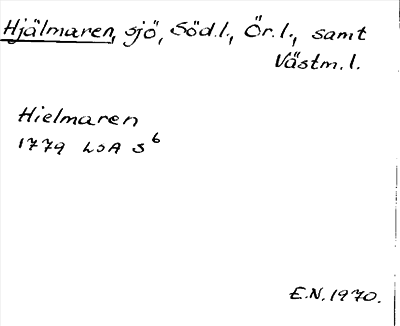 Hjälmaren, sjö, Söd.l., Ör.l., samt
Västm.l.
Hielmaren
1779 LSA S6
E.N. 1970.